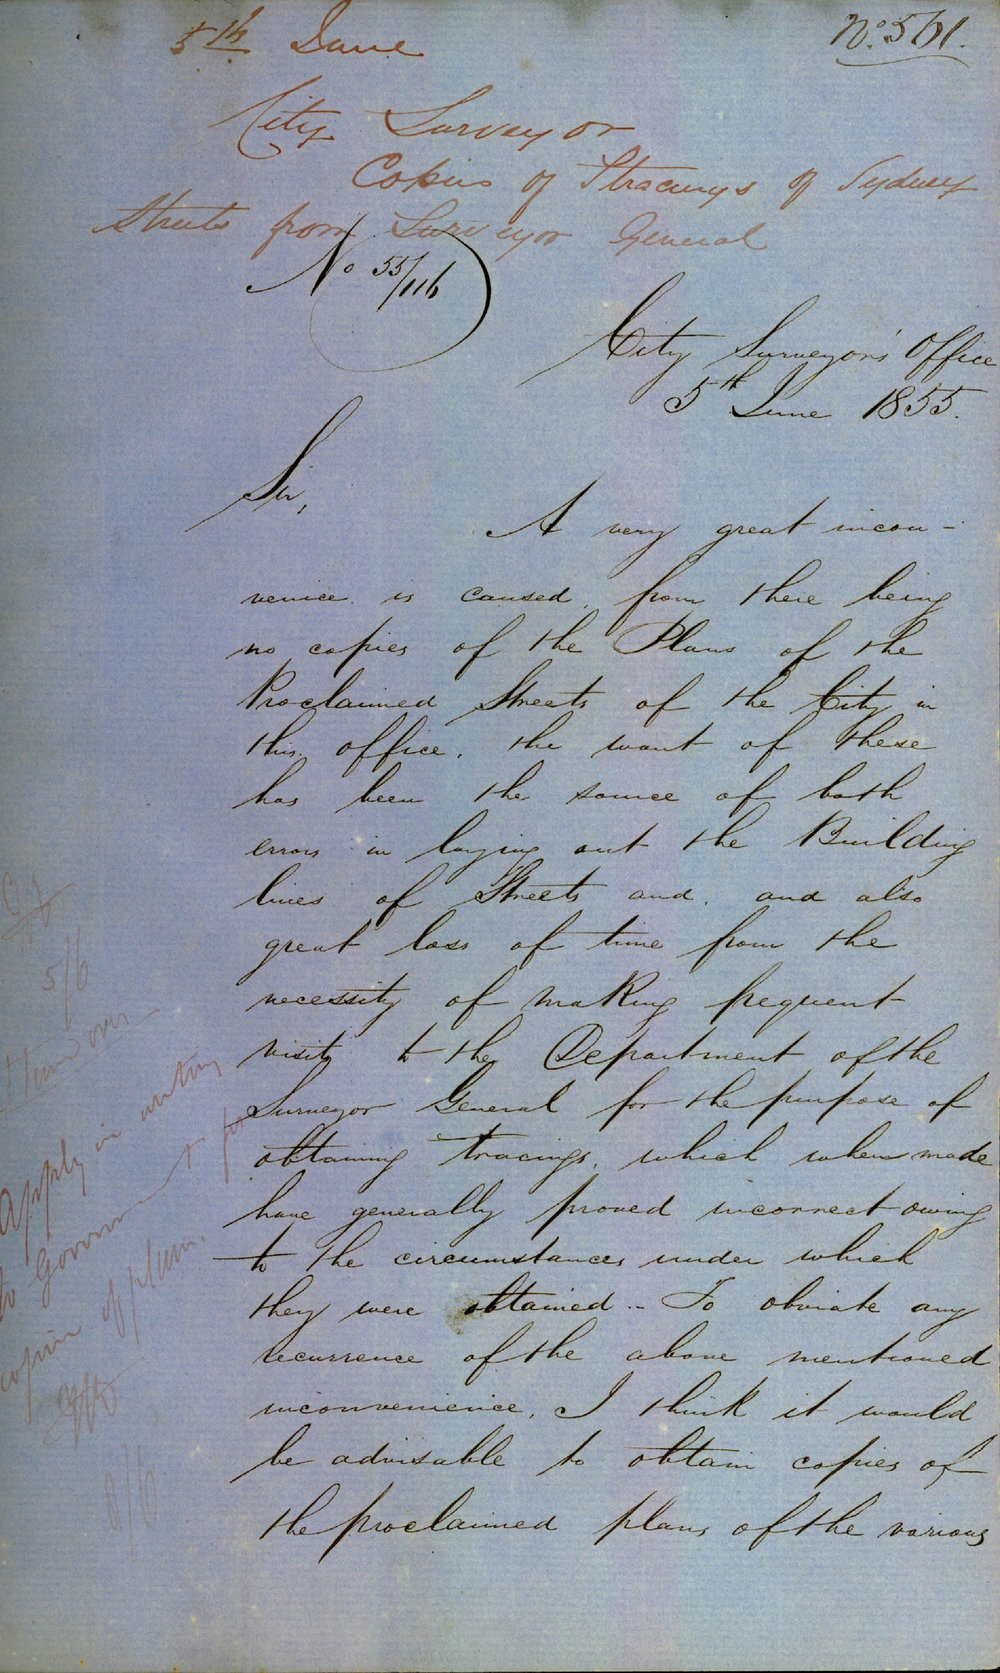 5th June
No. 561.
City Surveyor
Copies of Tracings of Sydney
Streets from Surveyor General
No 55/116
City Surveyors' Office
5th June 1855.
Sir,
A very great incon-
venice is caused, from there being
no copies of the Plans of the
Proclaimed Streets of the City in
this office, the want of these
has been the source of both
errors in laying out the Building
lines of Streets and, and also
great loss of time from the
necessity of making frequent
visits to the Department of the
Surveyor General for the purpose of
obtaining tracings, which when made
have generally proved incorrect owing
to the circumstances under which
they were obtained .. To obviate any
recurrence of the above mentioned
inconvenience, I think it would
be advisable to obtain copies of
the proclaimed plans of the various
5/6
Turn over
Apply in writing
to Government for
copies of plan.